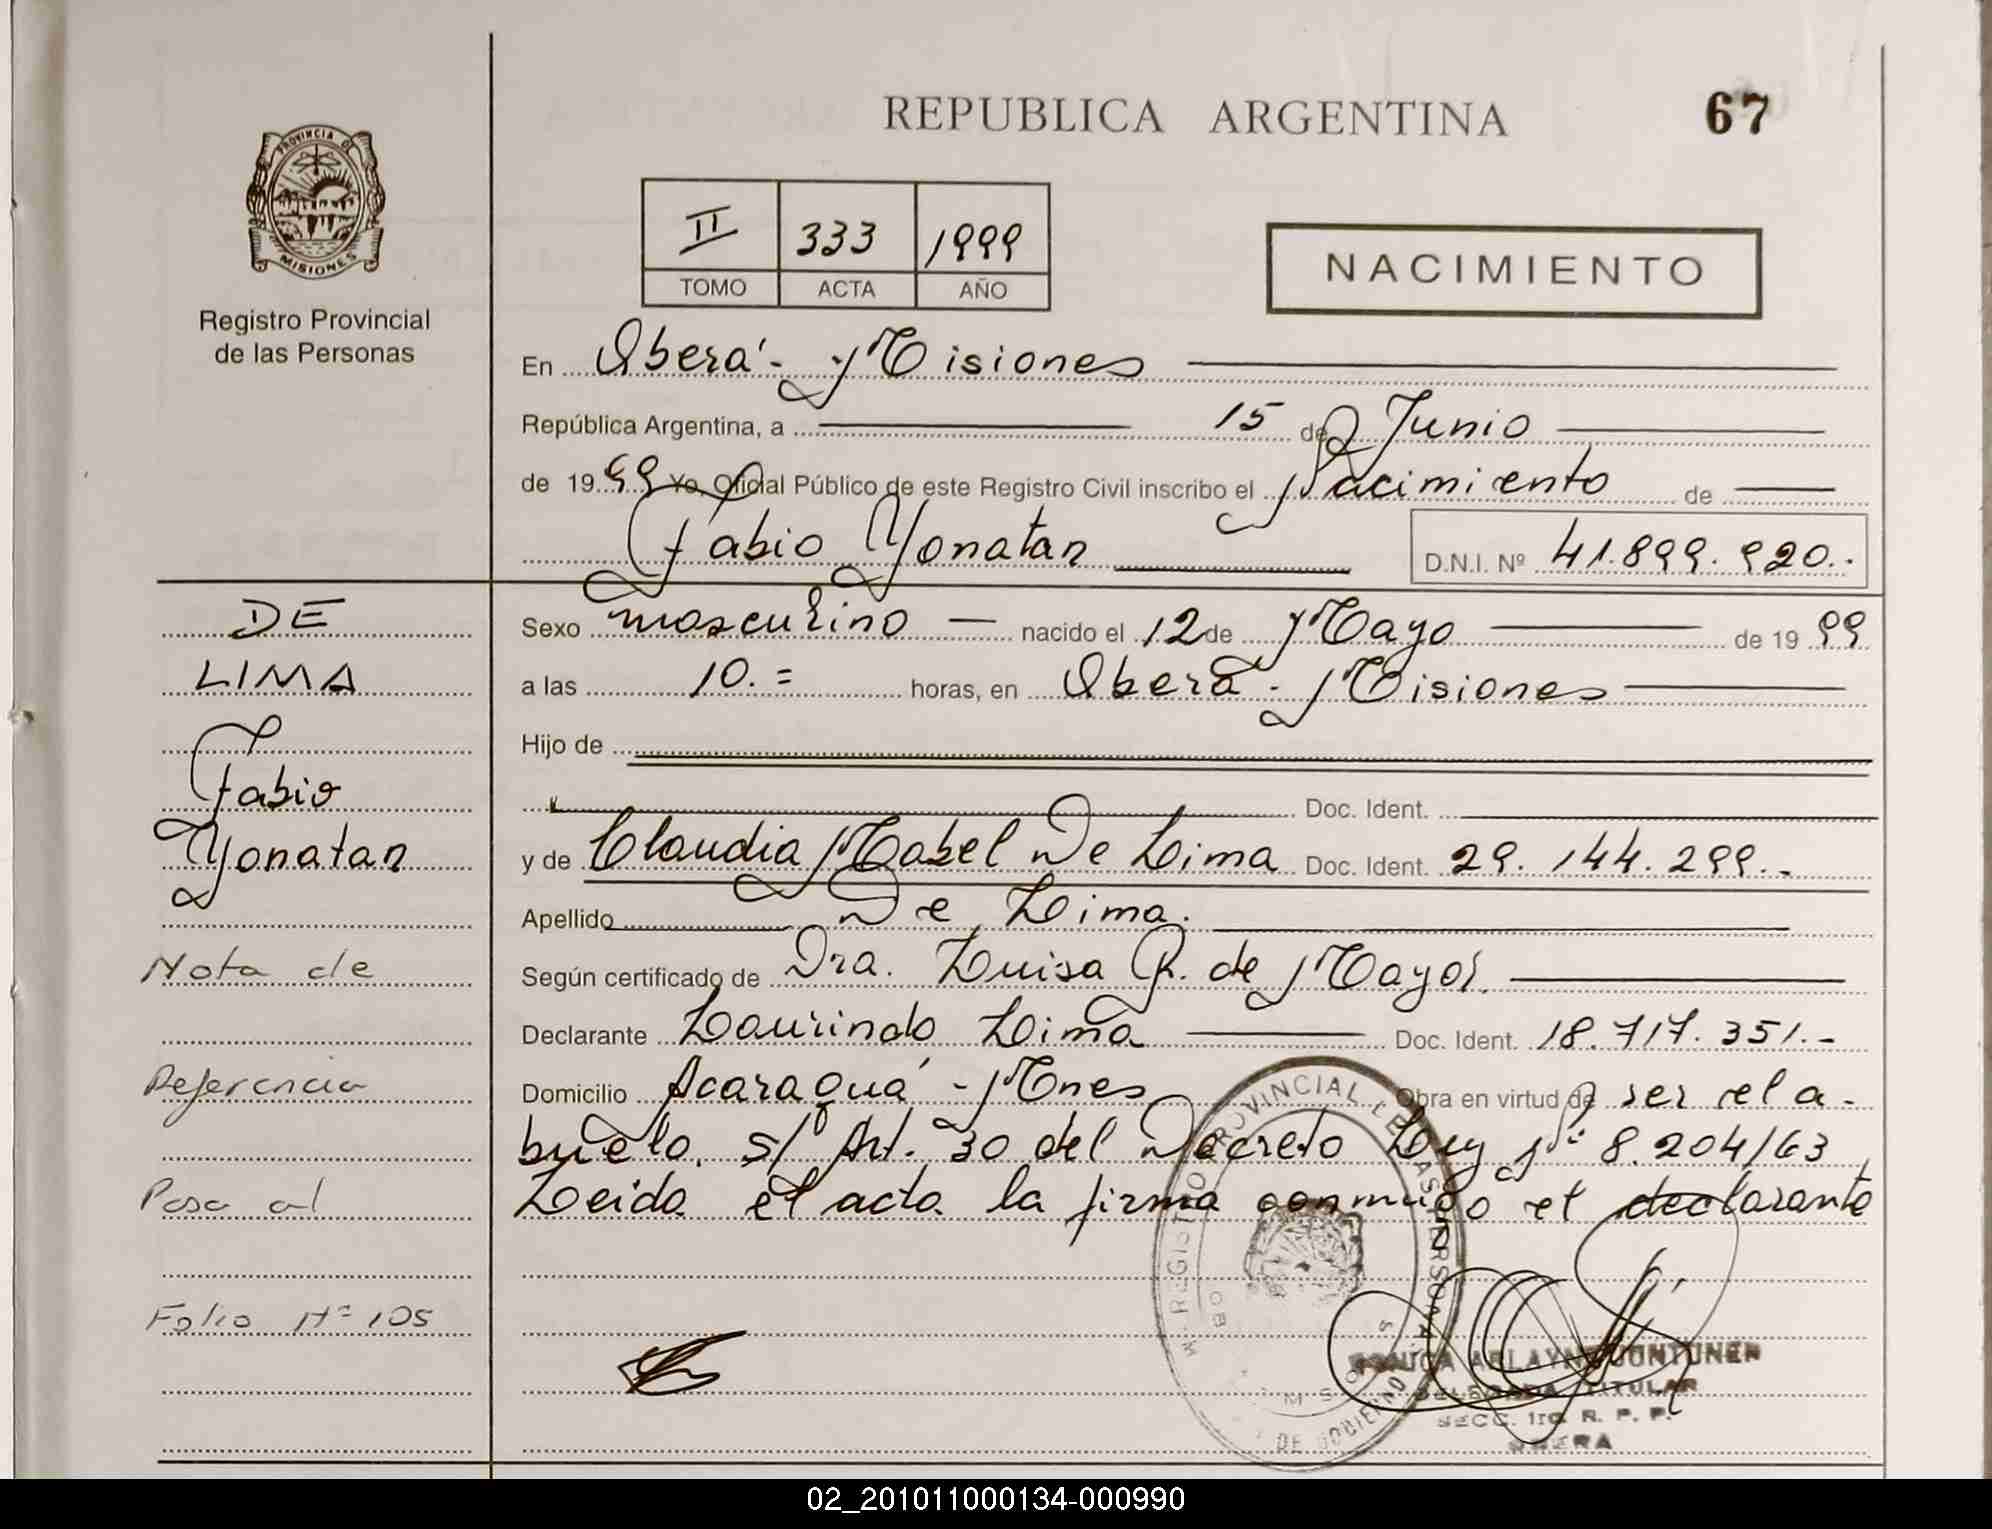 REPUBLICA ARGENTINA
67
PROVINCIA DE
MISIONES
Registro Provincial
de las Personas
II 333 1999
TOMO ACTA AÑO
NACIMIENTO
En Oberá - Misiones
República Argentina, a 15 de Junio
de 1999 Yo, Oficial Público de este Registro Civil inscribo el Nacimiento de
Fabio Yonatan D.N.I. Nº 41.899.920.-
DE
LIMA
Fabio
Yonatan
Nota de
Referencia
Pasa al
Folio Nº 105
Sexo masculino nacido el 12 de Mayo de 1999
a las 10.= horas, en Oberá - Misiones
Hijo de
Doc. Ident.
y de Claudia Mabel De Lima Doc. Ident. 29.144.299.-
Apellido De Lima.
Según certificado de Dra. Luisa R. de Mayol.
Declarante Laurindo Lima Doc. Ident. 18.717.351.-
Domicilio Acaraguá - Mnes Obra en virtud de ser el a-
buelo. s/ Art. 30 del Decreto Ley Nº 8.204/63
Leida el acta la firma conmigo el declarante
REGISTRO PROVINCIAL DE LAS PERSONAS
DE GOBIERNO
ARLAYNE JUNTUNEN
DELEGADA TITULAR
SECC. 1ra. R. P. P.
OBERA
02_201011000134-000990